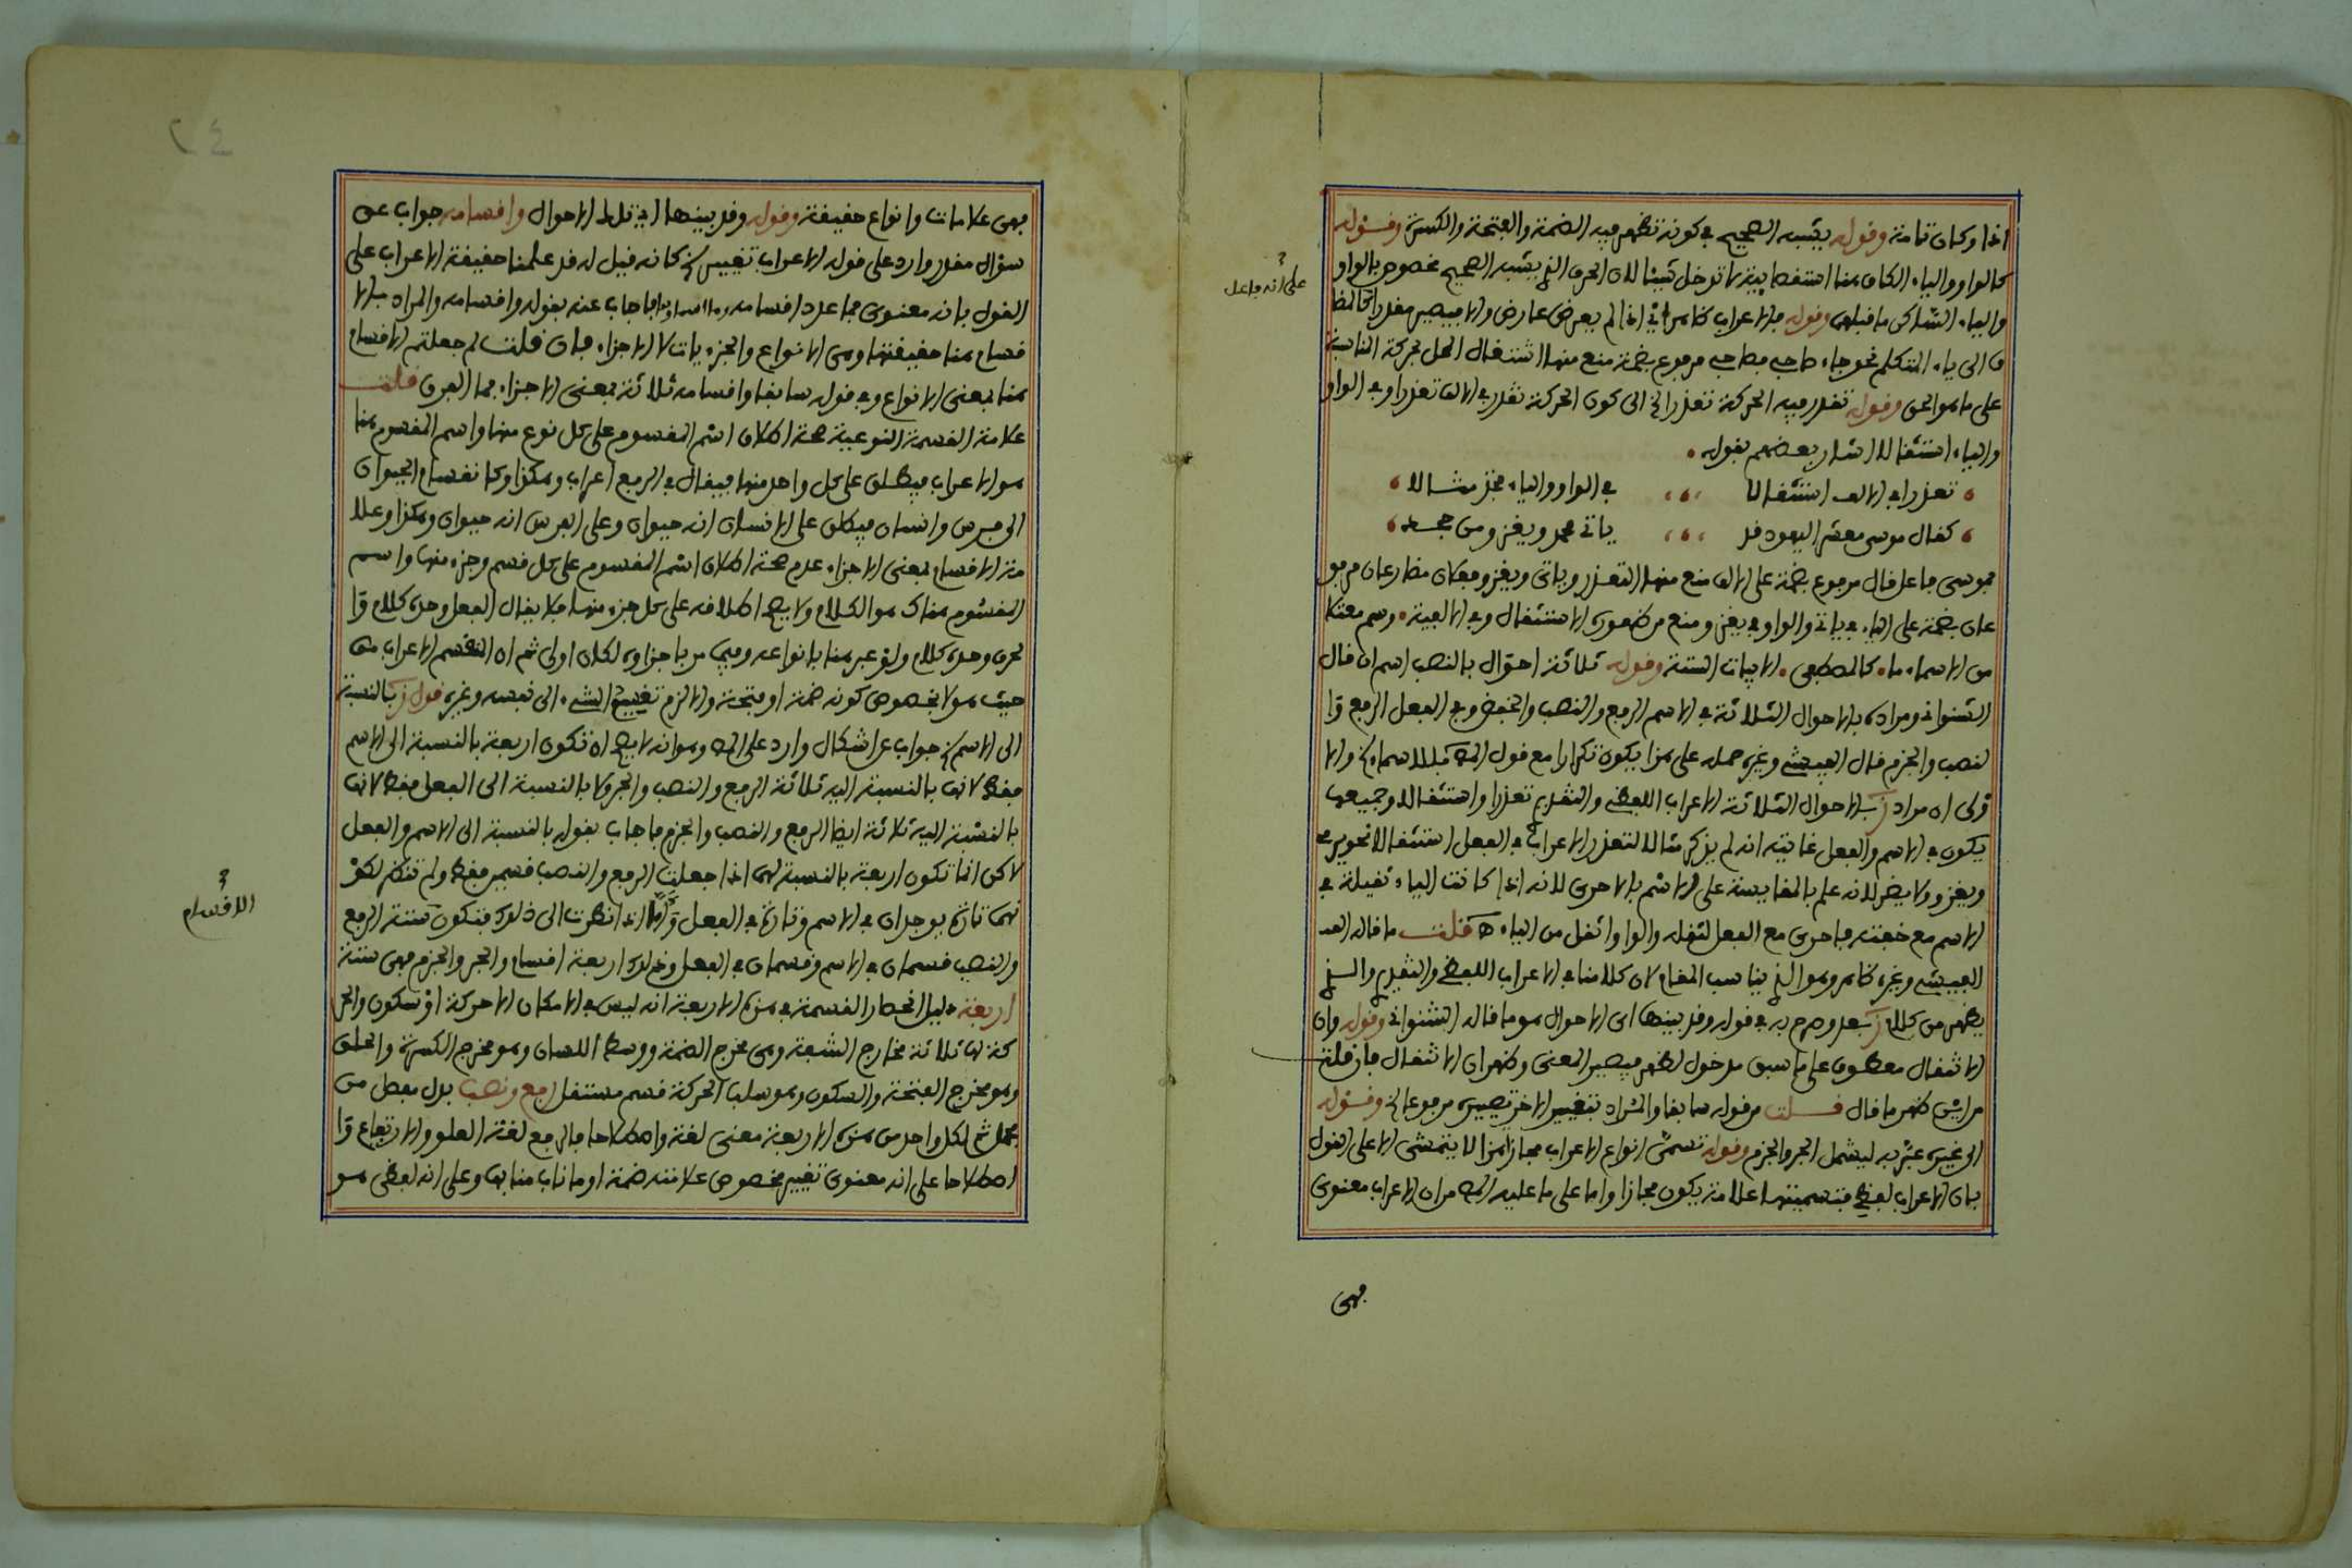 اذا وكان تامة وقوله يشبه الصحيح في كونه تظهر فيه الضمة والفتحة والكسرة وقوله
كالواو والياء الكاف هنا استقصائية لا تدخل شيئا لان الحرف الذي يشبه الصحيح مخصوص بالواو
والياء الساكن ما قبلهما وقوله فالاعراب ظاهر اي اذا لم يعرض عارض والا فيصير مقدرا كالمضا
ف الى ياء المتكلم نحو جاء صاحبي فصاحبي مرفوع بضمة منع منها اشتغال المحل بحركة المناسبة
على ما هو الحق وقوله تقدر فيه الحركة تعذرا الخ الى كون الحركة تقدر في الالف تعذرا وفي الواو
والياء استثقالا اشار بعضهم بقوله
تعذرا في الالف استثقالا في الواو والياء فخذ مثالا
كقال موسى معشر اليهود قد ياتي محمد ويغزو من جحد
فموسى فاعل قال مرفوع بضمة على الالف منع منها التعذر وياتي ويغزو فعلان مضارعان مرفو
عان بضمة على الياء في ياتي والواو في يغزو منع من ظهورها الاستثقال وفي الالفية وسم معتلا
من الاسماء ما كالمصطفى الابيات الستة وقوله ثلاثة احوال بالنصب اسم ان قال
الشنواني ومراده بالاحوال الثلاثة في الاسم الرفع والنصب والخفض وفي الفعل الرفع وا
لنصب والجزم قال الفيشي وغيره حمله على هذا يكون تكرارا مع قول المص فللاسماء الخ والا
ولى ان مراد ز بالاحوال الثلاثة الاعراب اللفظي والتقدير تعذرا واستثقالا وجميعها
يكون في الاسم والفعل غايته انه لم يذكر مثالا لتعذر الاعراب في الفعل استثقالا نحو يرمي
ويغزو ولا يضر لانه علم بالمقايسة على الاسم بالاحرى لانه اذا كانت الياء ثقيلة في
الاسم مع خفته فاحرى مع الفعل لثقله والواو اثقل من الياء قلت ما قاله
الفيشي وغيره ظاهر وهو الذي يناسب المقام لان كلامنا في الاعراب اللفظي والتقديري والذي
يظهر من كلام ز بعد وصرح به في قوله وقد بينها اي الاحوال هو ما قاله الشنواني وقوله وان
الانتقال معطوف على ما سبق مدخول لظهر فيصير المعنى وظهر ان الانتقال فان قلت
من اين ظهر ما قال قلت من قوله سابقا والمراد بتغيير الاخر تصييره مرفوعا الخ وقوله
الى غيره عبر به ليشمل الجر والجزم وقوله تسمى انواع الاعراب مجازا هذا لا يتمشى الا على القول
بان الاعراب لفظي فتسميتها علامة يكون مجازا واما على ما عليه المص من ان الاعراب معنوي
على انه فاعل
فهي
٢٤
فهي علامات وانواع حقيقة وقوله وقد بينها اي تلك الاحوال واقسامه جواب عن
سؤال مقدر وارد على قوله الاعراب تغيير الخ كانه قيل له قد علمنا حقيقة الاعراب على
القول بانه معنوي فما عدد اقسامه وما اسماؤها فاجاب عنه بقوله واقسامه والمراد بالا
قسام هنا حقيقتها وهي الانواع والجزءيات لا الاجزاء فان قلت لم جعلتم الاقسام
هنا بمعنى الانواع وفي قوله سابقا واقسامه ثلاثة بمعنى الاجزاء فما الفرق قلت
علامة القسمة النوعية صحة اطلاق اسم المقسوم على كل نوع منها واسم المقسوم هنا
هو الاعراب فيطلق على كل واحد منها فيقال في الرفع اعراب وهكذا وكانقسام الحيوان
الى فرس وانسان فيطلق على الانسان انه حيوان وعلى الفرس انه حيوان وهكذا وعلا
مة الاقسام بمعنى الاجزاء عدم صحة اطلاق اسم المقسوم على كل قسم وجزء منها واسم
المقسوم هناك هو الكلام ولا يصح اطلاقه على كل جزء منها فلا يقال الفعل وحده كلام وا
لحرف وحده كلام ولو عبر هنا بانواعه وفيما مر باجزاءه لكان اولى ثم ان الاعراب من
حيث هو لا بخصوص كونه ضمة او فتحة والا لزم تقسيم الشيء الى نفسه وغيره قول ز بالنسبة
الى الاسم الخ جواب عن اشكال وارد على المص وهو انه لا يصح ان تكون اربعة بالنسبة الى الاسم
فقط لانها بالنسبة اليه ثلاثة الرفع والنصب والجر ولا بالنسبة الى الفعل فقط لانها
بالنسبة اليه ثلاثة ايضا الرفع والنصب والجزم فاجاب بقوله بالنسبة الى الاسم والفعل
لاكن انما تكون اربعة بالنسبة لهما اذا جعلت الرفع والنصب قسمين فقط ولم تنظر لكو
نهما تارة يوجدان في الاسم وتارة في الفعل واما اذا نظرت الى ذلك فتكون ستة الرفع
والنصب قسمان في الاسم وقسمان في الفعل وذلك اربعة اقسام والجر والجزم فهي ستة
اربعة دليل انحصار القسمة في هذه الاربعة انه ليس في الامكان الا حركة او سكون والحر
كة لها ثلاثة مخارج الشفة وهي مخرج الضمة ووسط اللسان وهو مخرج الكسرة والحلق
وهو مخرج الفتحة والسكون وهو سلب الحركة قسم مستقل رفع ونصب بدل مفصل من
مجمل ثم لكل واحد من هذه الاربعة معنى لغة واصطلاحا فالرفع لغة العلو والارتفاع وا
اصطلاحا على انه معنوي تغيير مخصوص علامته ضمة او ما ناب منابها وعلى انه لفظي هو
الاقسام